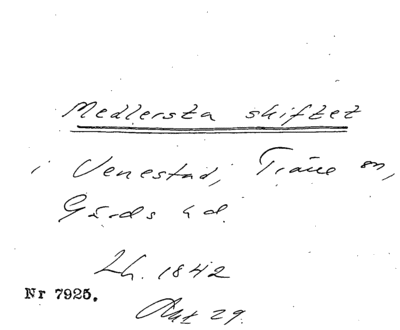 Medlersta skiftet
i Venestad, Träne sn,
Gärds hd.
Lh. 1842
Nr 7925.
Akt 29.